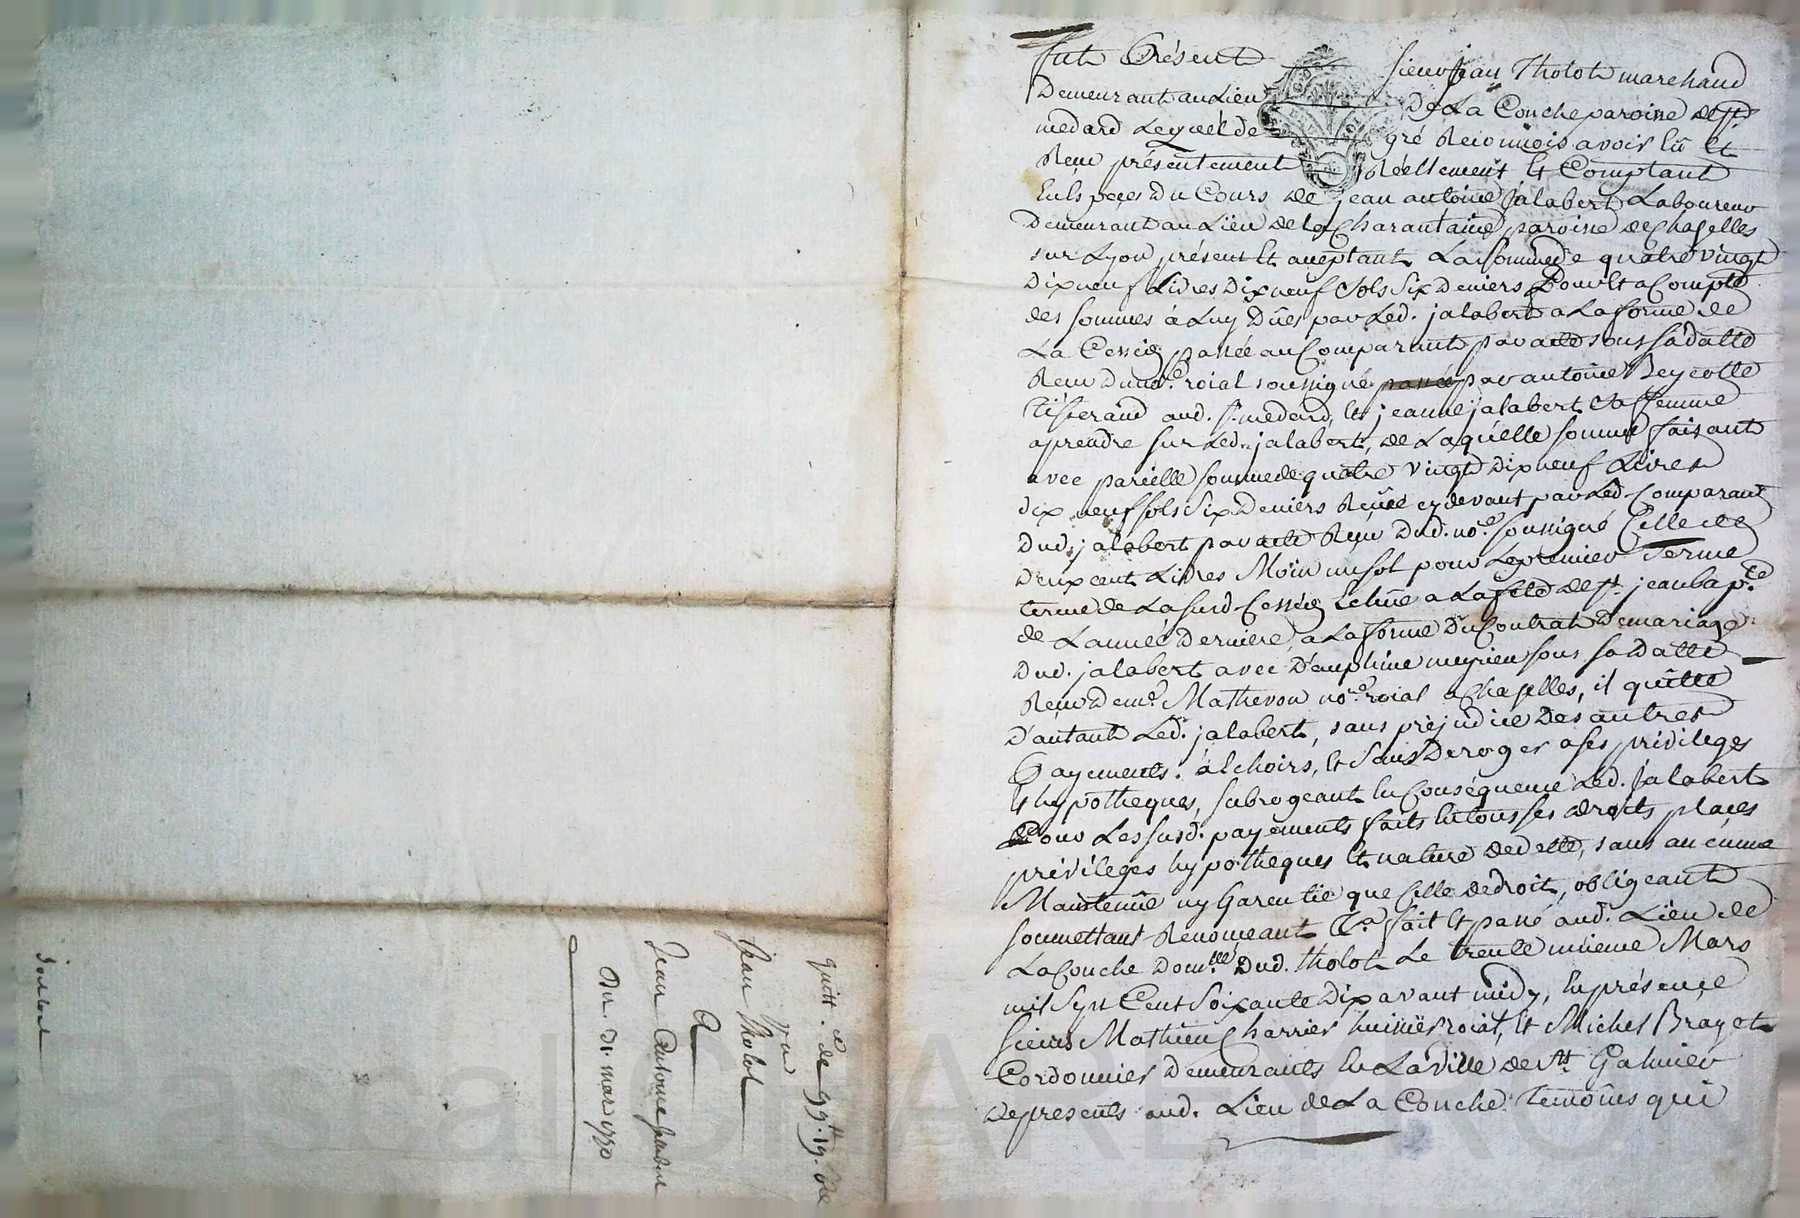 fut Présent sieur Jean Tholot marchand
Demeurant au Lieu De La Couche paroisse de st
medard Lequel de gré Reconnois avoir Eû et
Reçu présentement Réellement et Comptant
En Espeçes Du Cours de jean antoine Jalabert Laboureur
Demeurant au Liëu de la Charantaine paroisse de Chaselles
sur Lyon présent Et aceptant La somme de quatre vingt
Dixneuf Livres Dixneuf Sols Six Deniers Pour Et a Compte
des sommes à Luy Dûes par Led. jalabert a La forme de
La Cession passée au Comparant par acte sous sa datte
Reçu Dud. no.re roial soussigné passée par antoine Beycolle
Tisserand aud. st. medard, Et jeanne jalabert Sa femme
a prendre sur Led. jalabert, de Laquelle somme faisant
avec pareille somme de quatre Vingt dix neuf Livres
dix neuf sols Six Deniers Reçue cy devant par Led. Comparant
Dud. jalabert par acte Reçu Dud. no.e soussigné Celle de
Deux cent Livres Moin un sol pour Le premier Terme
terme de La susd. Cession Echue a La fete de st. jean bap.te
de L'année Derniere, a La forme Du Contrat De mariage
Dud. jalabert avec Dauphine meyrieu sous sa Datte
Reçu De me. Mathevon no.re roial a Chaselles, il quitte
D'autant Led. jalabert, sans prejudice Des autres
Payements. à Echoirs, Et Sans Deroger a ses privileges
Et hypotheques, subrogeant En Conséquence Led. Jalabert
Pour Les susd. payements faits En tous ses droits places
privileges hypotheques Et nature de dette, sans aucunne
Maintenüe ny Garentie que Celle de droit, obligeant
soumettant Renonceant &.a fait Et passé aud. Liëu de
La Couche Dom.lle Dud. Tholot Le trente unieme Mars
mil Sept Cent Soixante Dix avant midy, En présençe
sieurs Mathieu Charrier huissier roial, Et Michel Brayet
Cordonnier Demeurants En La Ville de st. Galmier
De presents aud. Lieu de La Couche. Temoins qui
quitt.ce de 99.tt 19.s 6d
Par
Jean Tholot
A
Jean Antoine Jalabert
Du 31. mar 1770
Pascal CHAREYRON